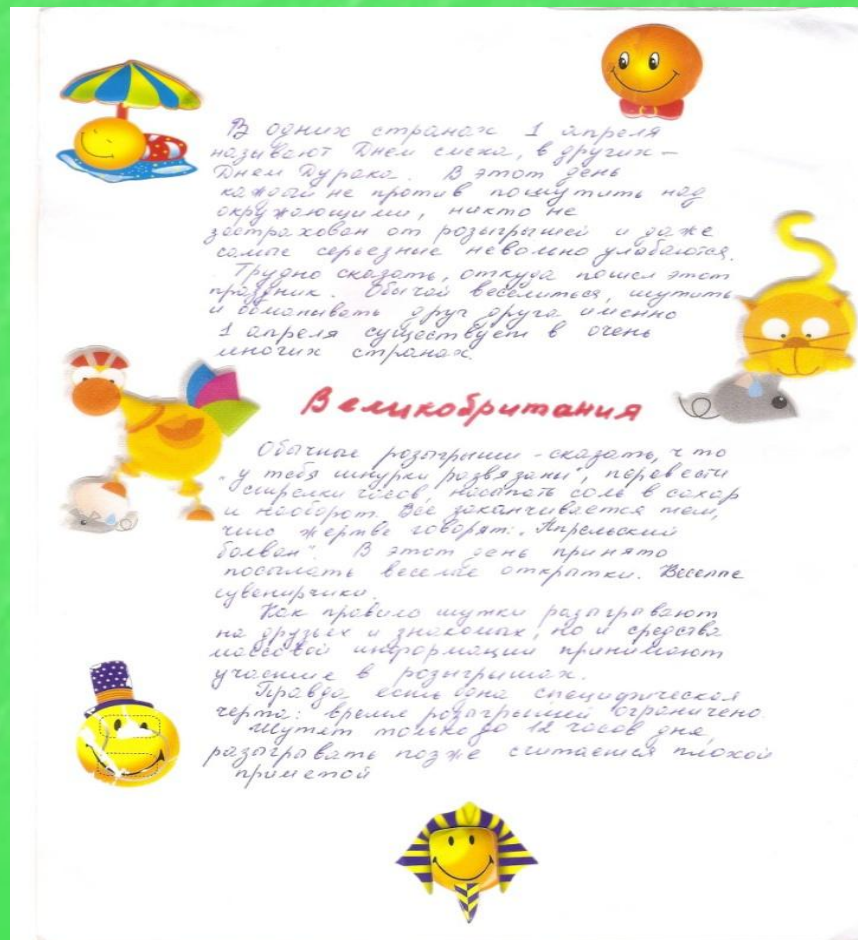 В одних странах 1 апреля
называют Днем смеха, в других –
Днем Дурака. В этот день
каждый не против пошутить над
окружающими, никто не
застрахован от розыгрышей и даже
самые серьезные невольно улыбаются.
Трудно сказать, откуда пошел этот
праздник. Обычай веселиться, шутить
и обманывать друг друга именно
1 апреля существует в очень
многих странах.
Великобритания
Обычные розыгрыши - сказать, что
"у тебя шнурки развязаны", перевести
стрелки часов, насыпать соль в сахар
и наоборот. Все заканчивается тем,
что жертве говорят: "Апрельский
болван". В этот день принято
посылать веселые открытки. Веселые
сувенирчики.
Как правило шутки разыгрывают
на друзьях и знакомых, но и средства
массовой информации принимают
участие в розыгрышах.
Правда есть одна специфическая
черта: время розыгрышей ограничено.
Шутят только до 12 часов дня,
разыгрывать позже считается плохой
приметой